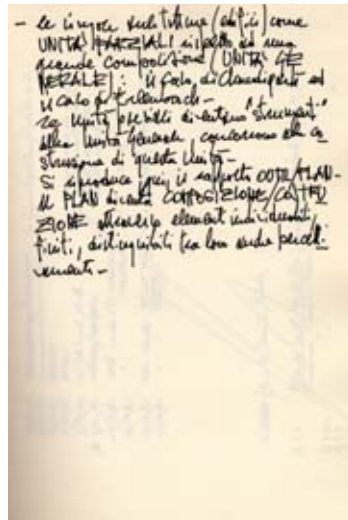 - le singole architetture (edifici) come
UNITÀ PARZIALI rispetto ad una
grande composizione (UNITÀ GE
NERALE): il caso di Chandigarh ed
il caso di Greenwich -
Le unità parziali diventano "strumenti"
della Unità Generale, concorrono alla co
struzione di questa Unità -
Si riproduce qui il rapporto OUTIL/PLAN -
Il PLAN diventa COMPOSIZIONE/COSTRU
ZIONE attraverso elementi individuati,
finiti, distinguibili fra loro anche percetti
vamente -